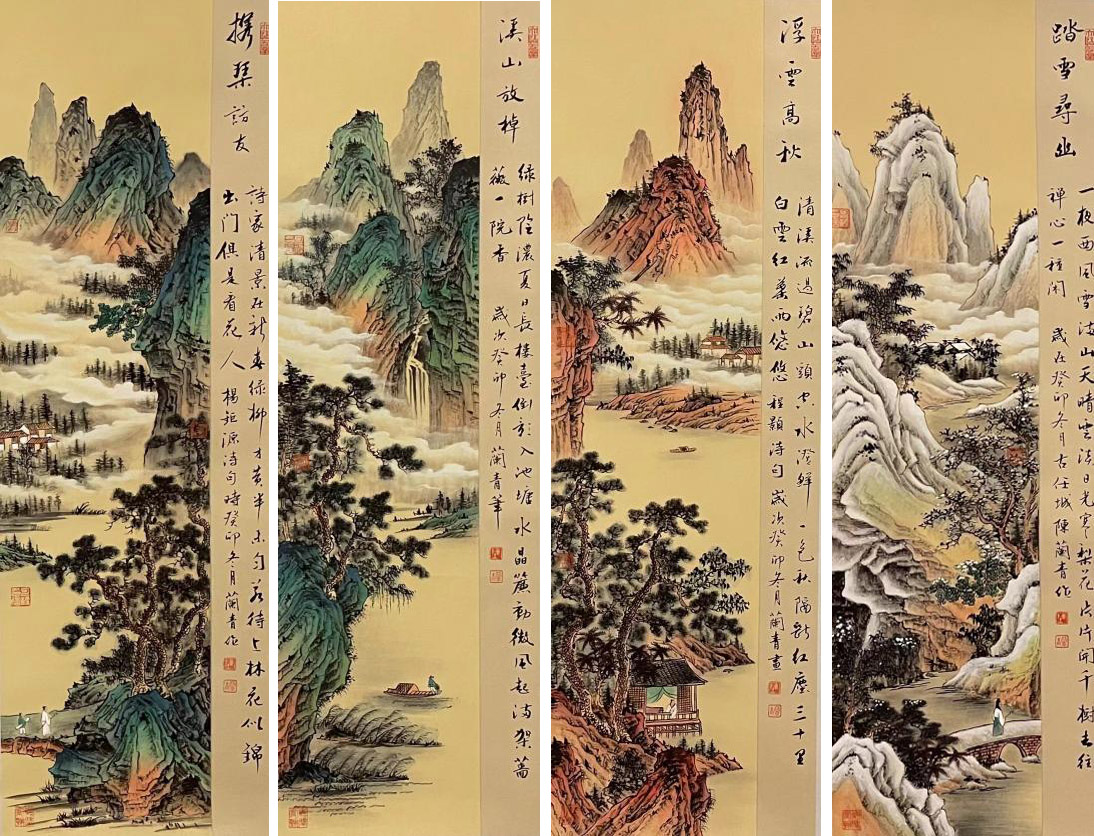 攜琴訪友
詩家清景在新春綠柳才黃半未勻若待上林花似錦
出门俱是看花人 楊鉅源詩句時癸卯冬月蘭青作
溪山放棹
綠樹陰濃夏日長樓臺倒影入池塘水晶簾動微風起滿架薔
薇一院香 歲次癸卯冬月蘭青筆
浮雲高秋
清溪流過碧山頭空水澄鮮一色秋隔斷紅塵三十里
白雲紅葉兩悠悠 程顥詩句歲次癸卯冬月蘭青畫
踏雪尋幽
一夜西風雪滿山天晴雲淡日光寒梨花片片開千樹去往
禪心一種閑 歲在癸卯冬月古任城陳蘭青作